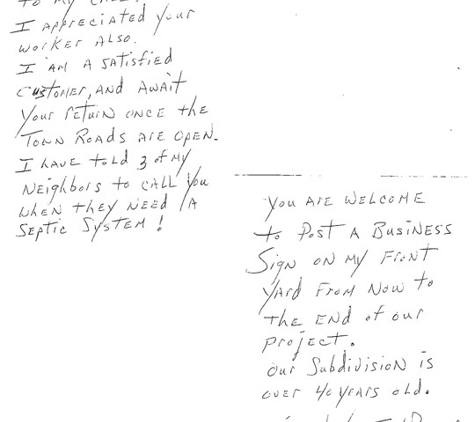 to my
I appreciated your
worker also.
I am a satisfied
customer, and await
your return once the
Town Roads are open.
I have told 3 of my
Neighbors to call you
when they need a
Septic System!
You are welcome
to Post a Business
Sign on my Front
Yard From Now to
the end of our
project.
Our Subdivision is
over 40 years old.